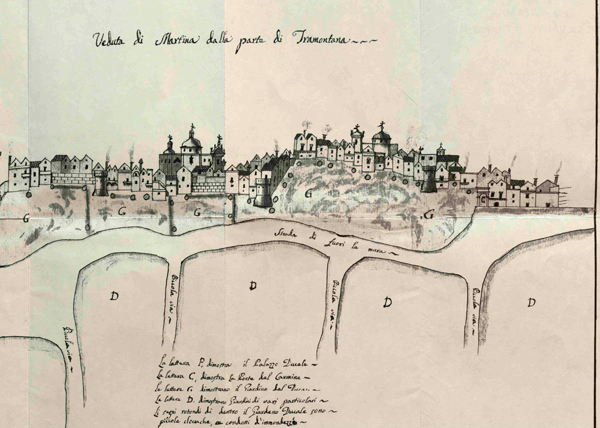 Veduta di Martina dalla parte di Tramontana
G
G
G
G
G
G
Strada di fuori le mura
Picola via
Picola via
Picola via
Picola via
D
D
D
D
La lettera P. dimostra il Palazzo Ducale
La lettera C. dimostra la Porta del Carmine
La lettera G. dimostrano il Giardino del
La lettera D. dimostrano Giardini di vari particolari
Li segni rotondi di dentro il Giardino Ducale sono
picciole cloache, condotti d'immondezze